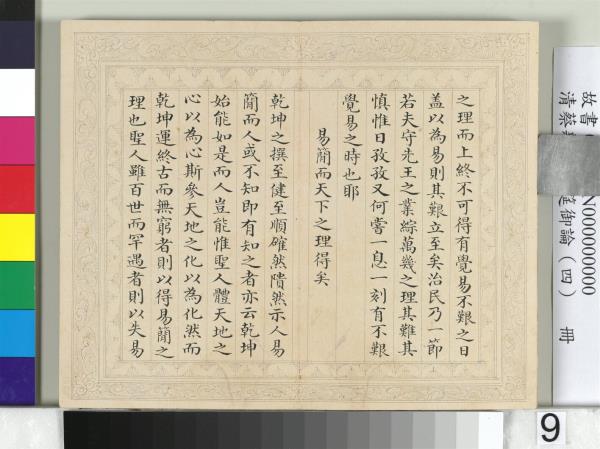 之理而上終不可得有覺易不艱之日
蓋以為易則其艱立至矣治民乃一節
若夫守先王之業綜萬幾之理其難其
慎惟日孜孜又何嘗一息一刻有不艱
覺易之時也耶
易簡而天下之理得矣
乾坤之撰至健至順確然隤然示人易
簡而人或不知即有知之者亦云乾坤
始能如是而人豈能惟聖人體天地之
心以為心斯參天地之化以為化然而
乾坤運終古而無窮者則以得易簡之
理也聖人雖百世而罕遇者則以失易
故書
N000000000
清蔡
御論(四) 冊
9